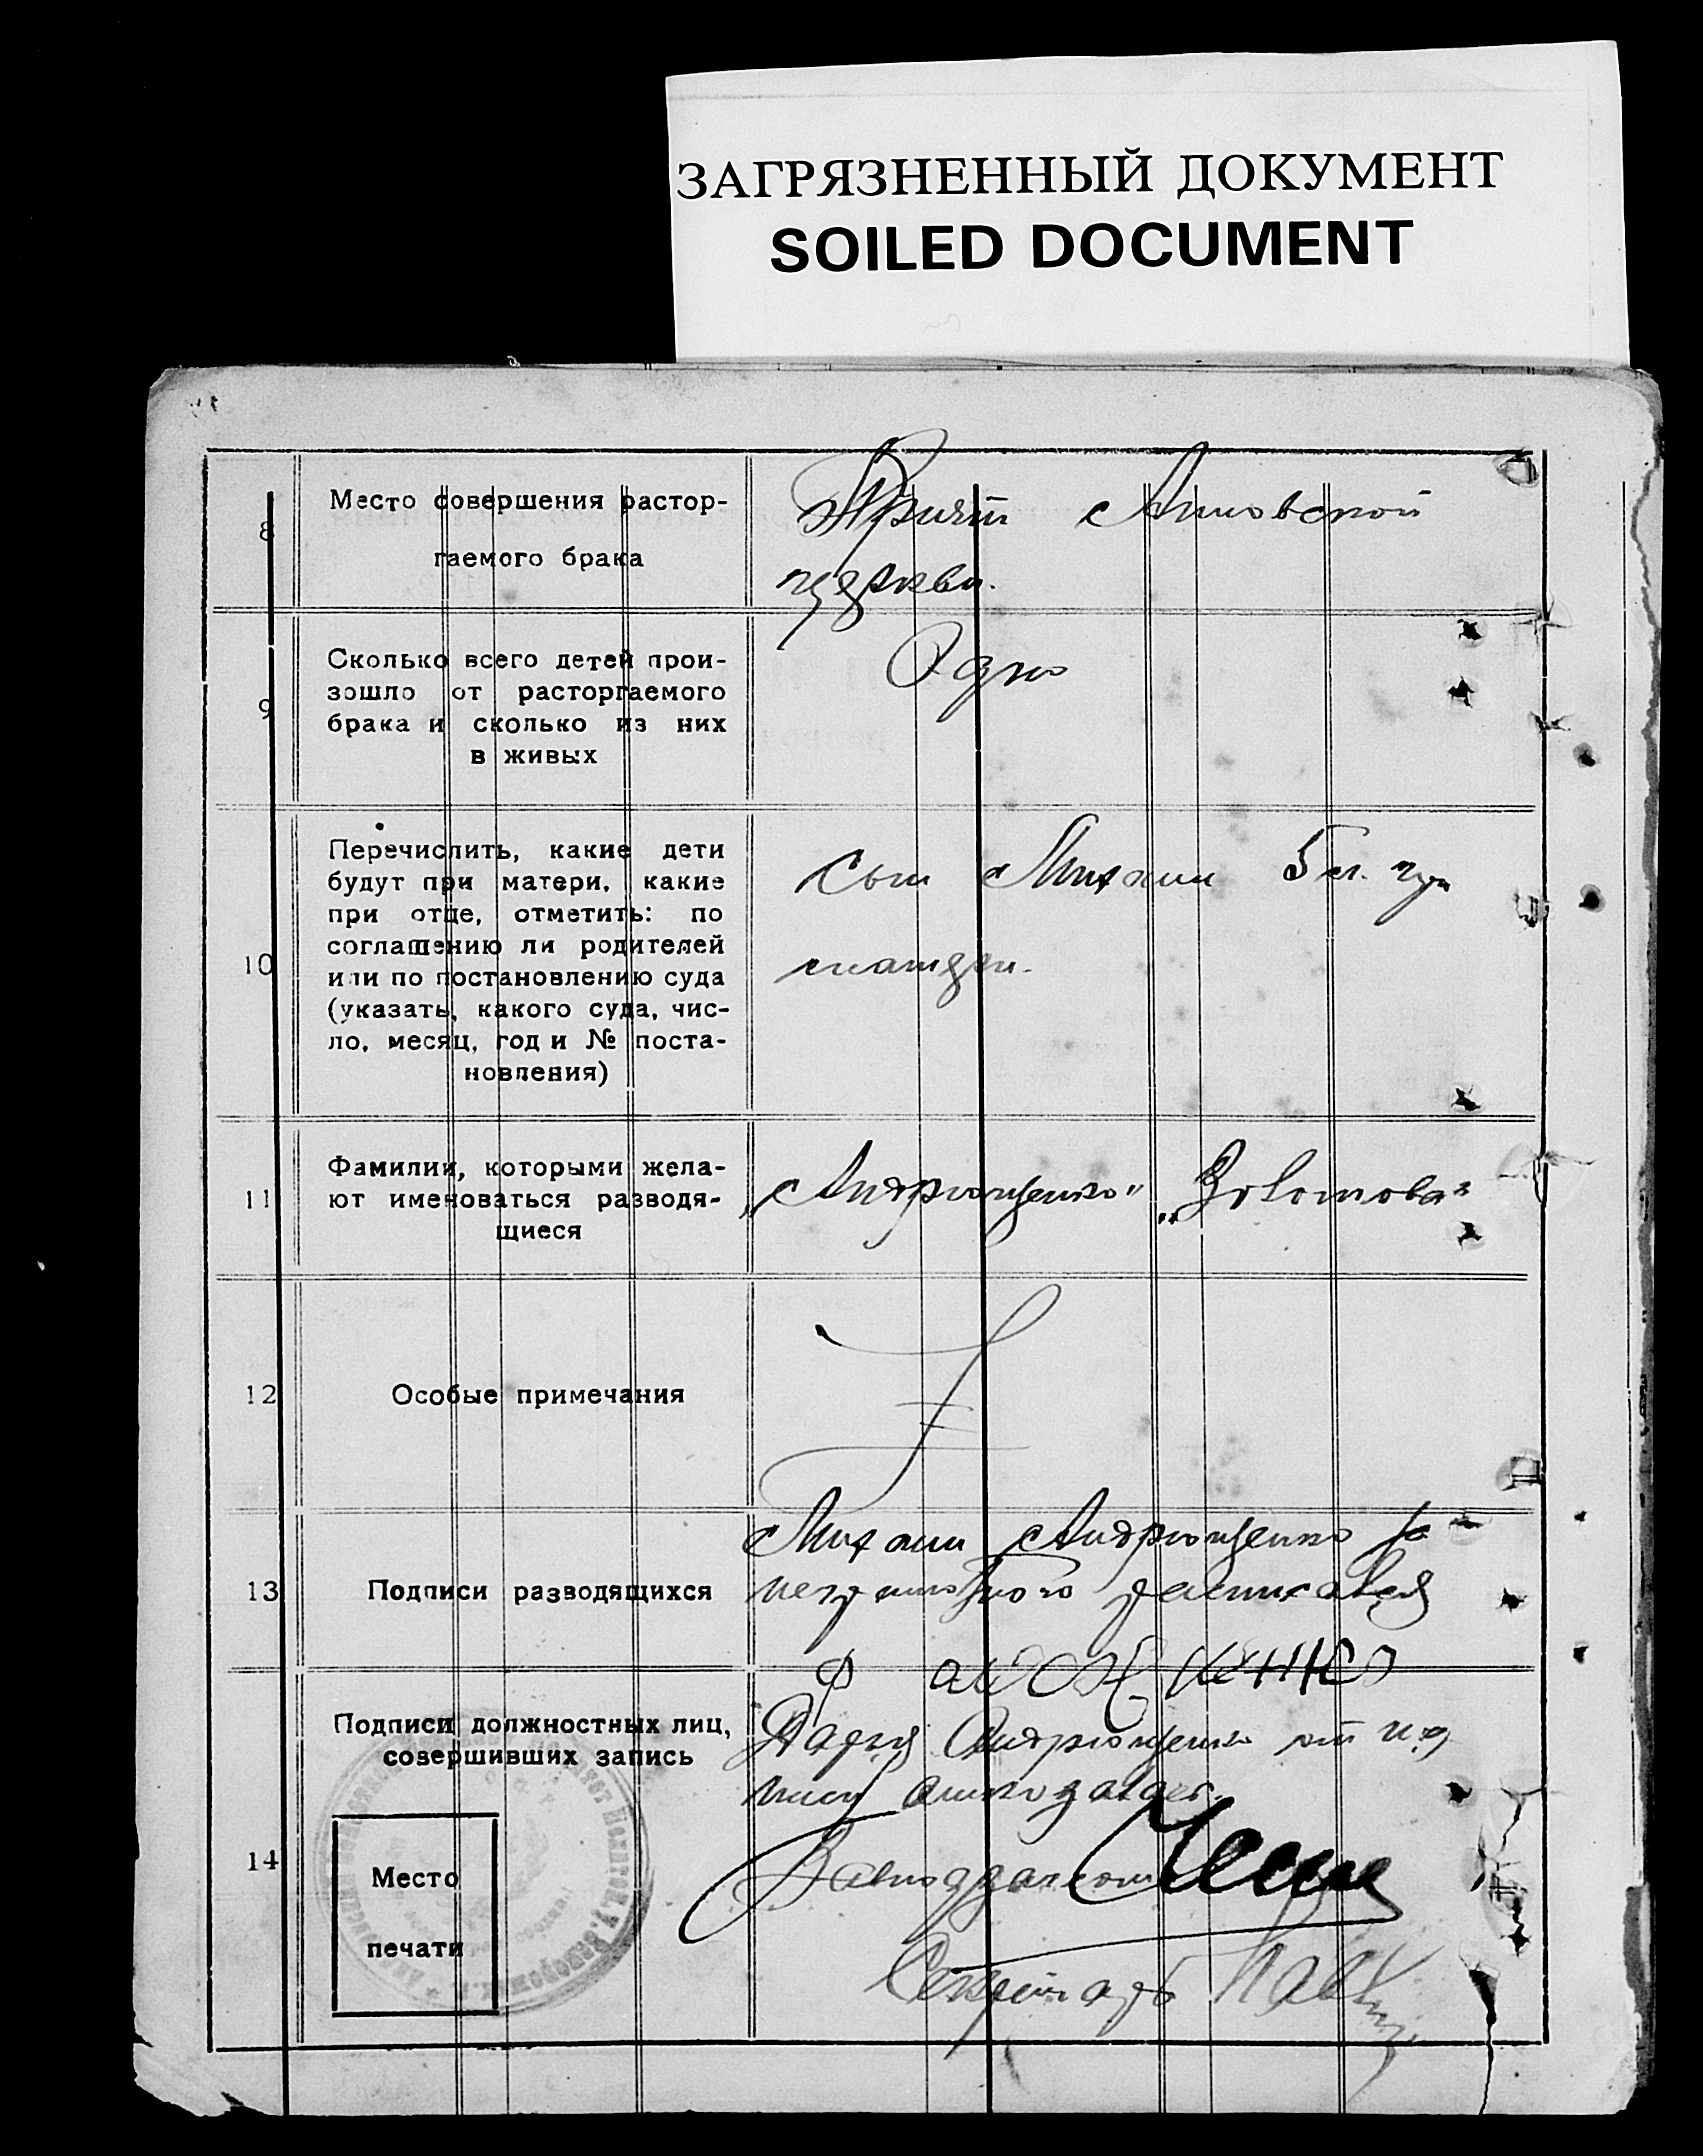 ЗАГРЯЗНЕННЫЙ ДОКУМЕНТ
SOILED DOCUMENT
8
Место совершения растор-
гаемого брака
Причт Анновской
церкви.
9
Сколько всего детей прои-
зошло от расторгаемого
брака и сколько из них
в живых
Одно
10
Перечислить, какие дети
будут при матери, какие
при отце, отметить: по
соглашению ли родителей
или по постановлению суда
(указать, какого суда, чис-
ло, месяц, год и № поста-
новления)
Сын Михаил 5 л. при
матери.
11
Фамилии, которыми жела-
ют именоваться разводя-
щиеся
„Андрющенко" „Золотова"
12
Особые примечания
13
Подписи разводящихся
Михаил Андрющенко за
неграмотного расписался
Ф
Дарья Андрющенко от под
писи отказалась.
14
Подписи должностных лиц,
совершивших запись
Место
печати
Завподзагсом
Секретарь